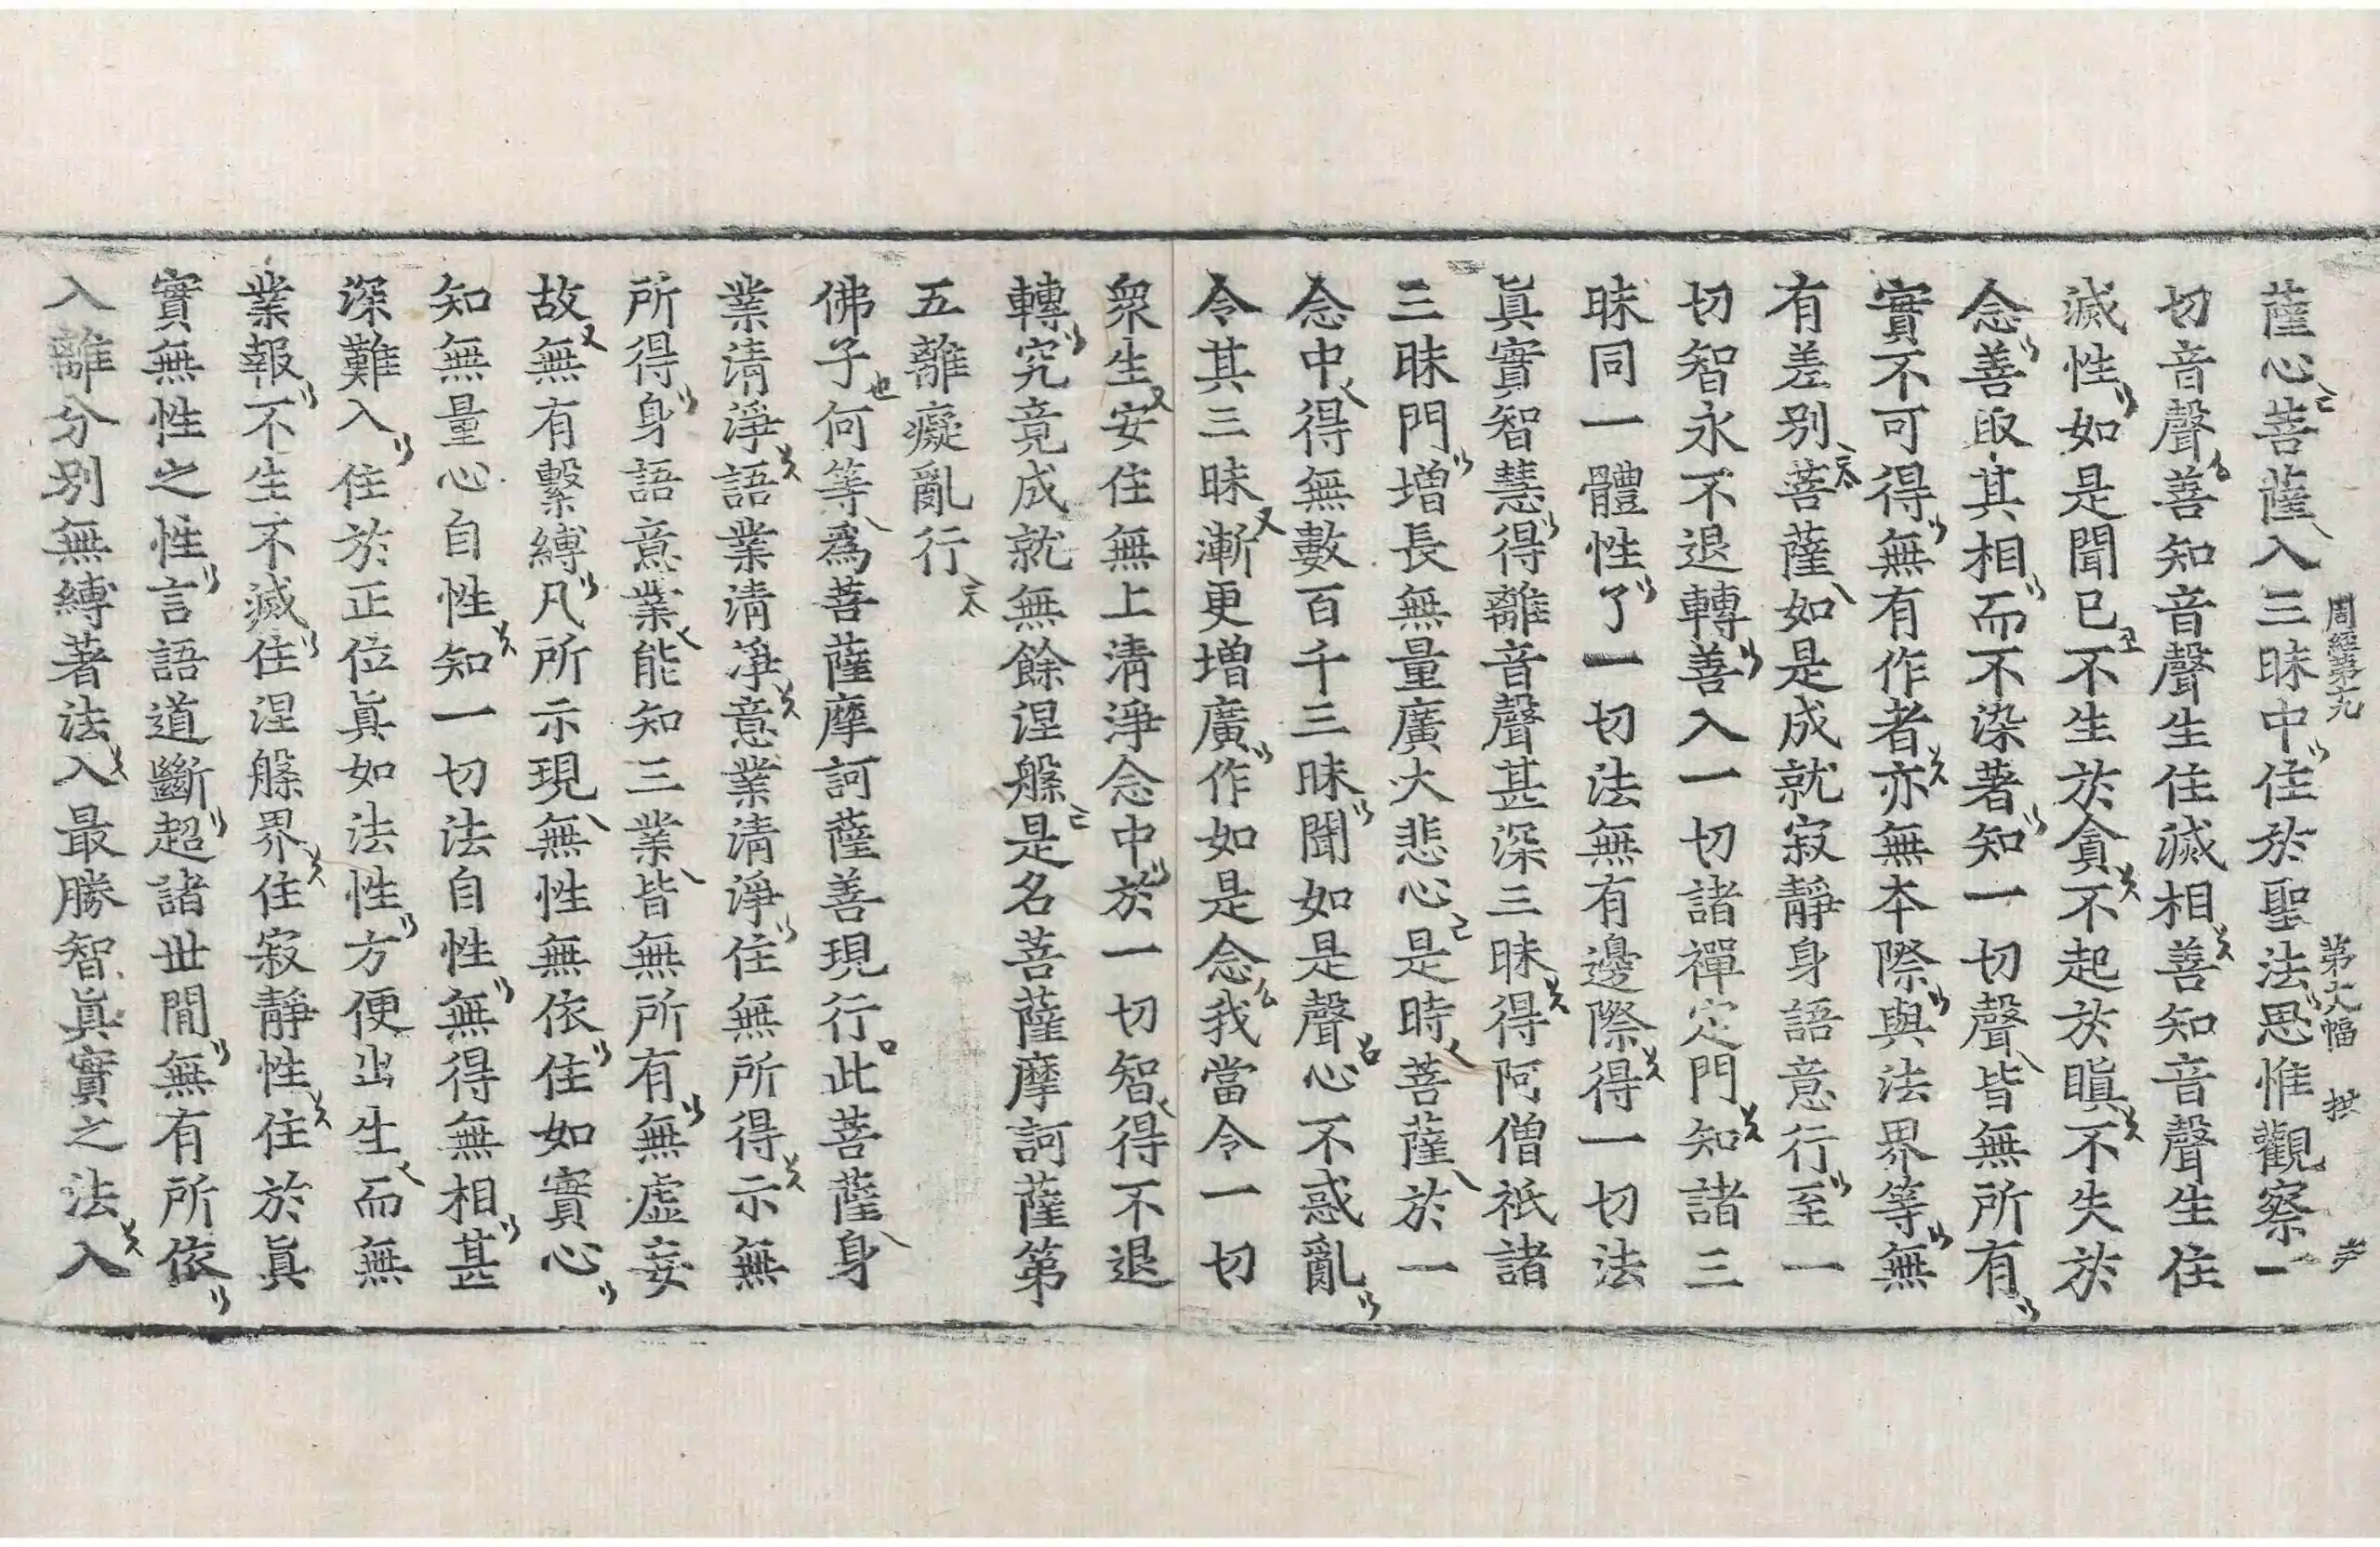 周經第十九 第大幅
薩心菩薩入三昧中住於聖法思惟觀察一
切音聲善知音聲生住滅相善知音聲生住
滅性如是聞已不生於貪不起於瞋不失於
念善取其相而不染著知一切聲皆無所有
實不可得無有作者亦無本際與法界等無
有差别菩薩如是成就寂靜身語意行至一
切智永不退轉善入一切諸禪定門知諸三
昧同一體性了一切法無有邊際得一切法
眞實智慧得離音聲甚深三昧得阿僧祇諸
三昧門增長無量廣大悲心是時菩薩於一
念中得無數百千三昧聞如是聲心不惑亂
令其三昧漸更增廣作如是念我當令一切
衆生安住無上清淨念中於一切智得不退
轉究竟成就無餘涅槃是名菩薩摩訶薩第
五離癡亂行
佛子何等爲菩薩摩訶薩善現行此菩薩身
業清淨語業清淨意業清淨住無所得示無
所得身語意業能知三業皆無所有無虛妄
故無有繫縛凡所示現無性無依住如實心
知無量心自性知一切法自性無得無相甚
深難入住於正位眞如法性方便出生而無
業報不生不滅住涅槃界住寂靜性住於眞
實無性之性言語道斷超諸世間無有所依
入離分别無縛著法入最勝智眞實之法入